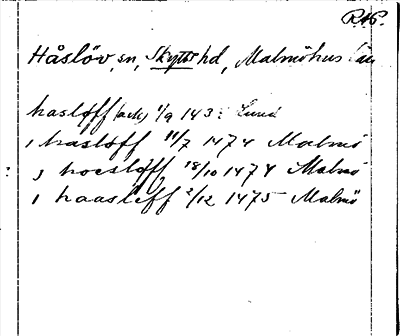 RAP.
Håslöv, sn, Skytts hd, Malmöhus län
hasløff (ack) 1/9 143 Lund
i hasløff 11/7 1474 Malmö
j hoesløff 18/10 1474 Malmö
i haasleff 2/12 1475 Malmö